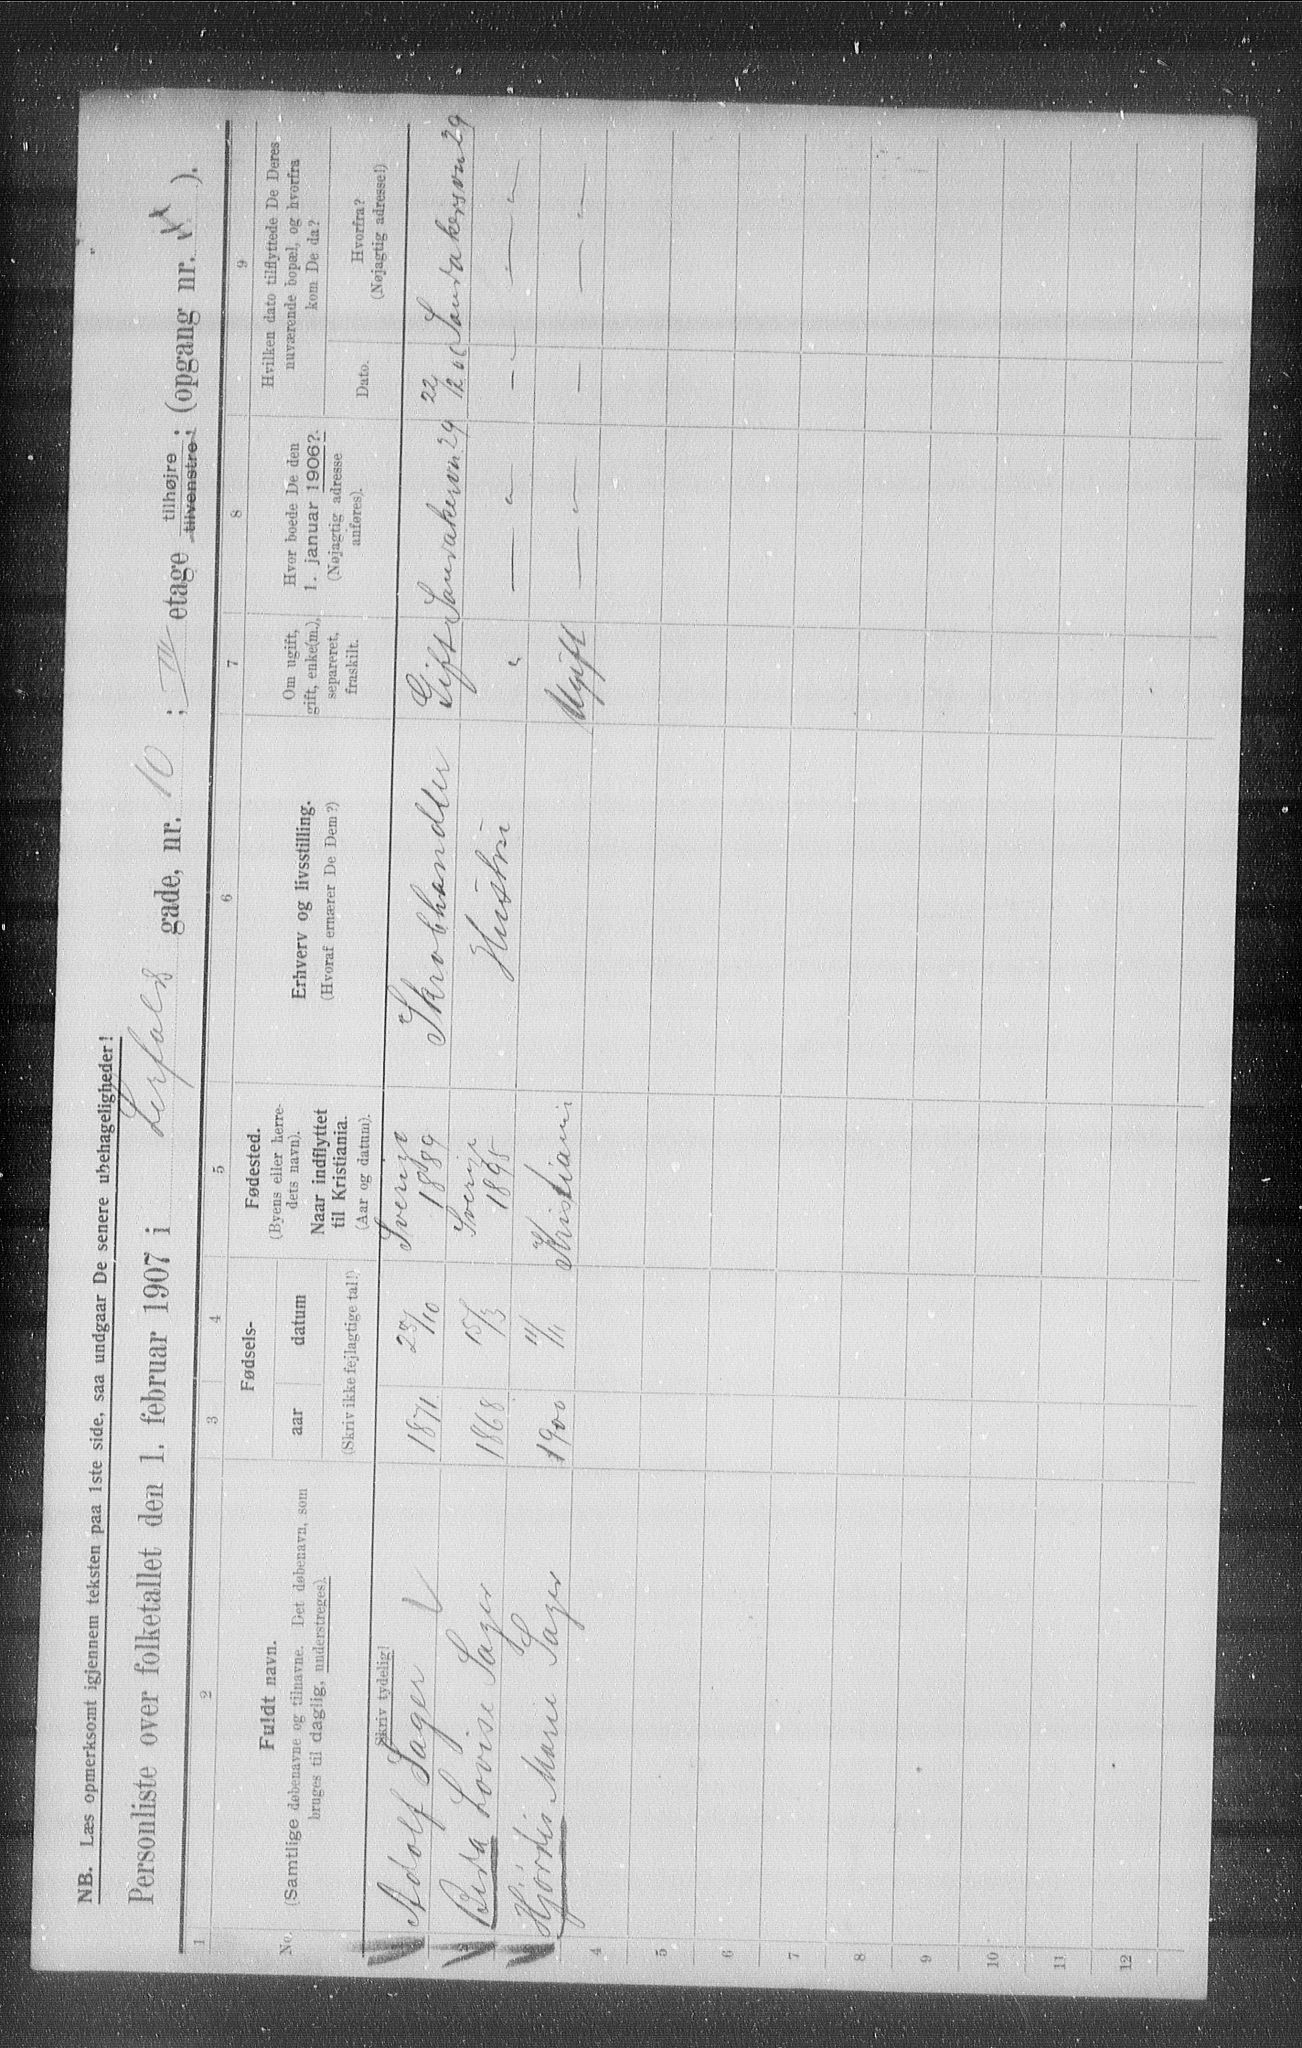 NB. Læs opmerksomt igjennem teksten paa 1ste side, saa undgaar De senere ubehageligheder!
Personliste over folketallet den 1. februar 1907 i Lerfals gade, nr. 10 ; IV etage tilhøjre tilvenstre; (opgang nr. ).
1 2 3 4 5 6 7 8 9
No.
Fuldt navn.
(Samtlige døbenavne og tilnavne. Det døbenavn, som
bruges til daglig, understreges).
Skriv tydelig!
Fødsels-
aar datum
(Skriv ikke fejlagtige tal!)
Fødested.
(Byens eller herre-
dets navn).
Naar indflyttet
til Kristiania.
(Aar og datum).
Erhverv og livsstilling.
(Hvoraf ernærer De Dem?)
Om ugift,
gift, enke(m.),
separeret,
fraskilt.
Hvor boede De den
1. januar 1906?
(Nøjagtig adresse
anføres).
Hvilken dato tilflyttede De Deres
nuværende bopæl, og hvorfra
kom De da?
Dato.
Hvorfra?
(Nøjagtig adresse!)
Adolf Sager 1871 23/10 Sverige 1889 Skrobhandler Gift Sandakervn. 29 22/12 06 Sandakersvn 29
Beda Lovise Sager 1868 15/3 Sverige 1895 Hustru " — " — — " — — " —
Hjördis Marie Sager 1900 11/11 Kristiania Ugift — " — — — " —
4
5
6
7
8
9
10
11
12